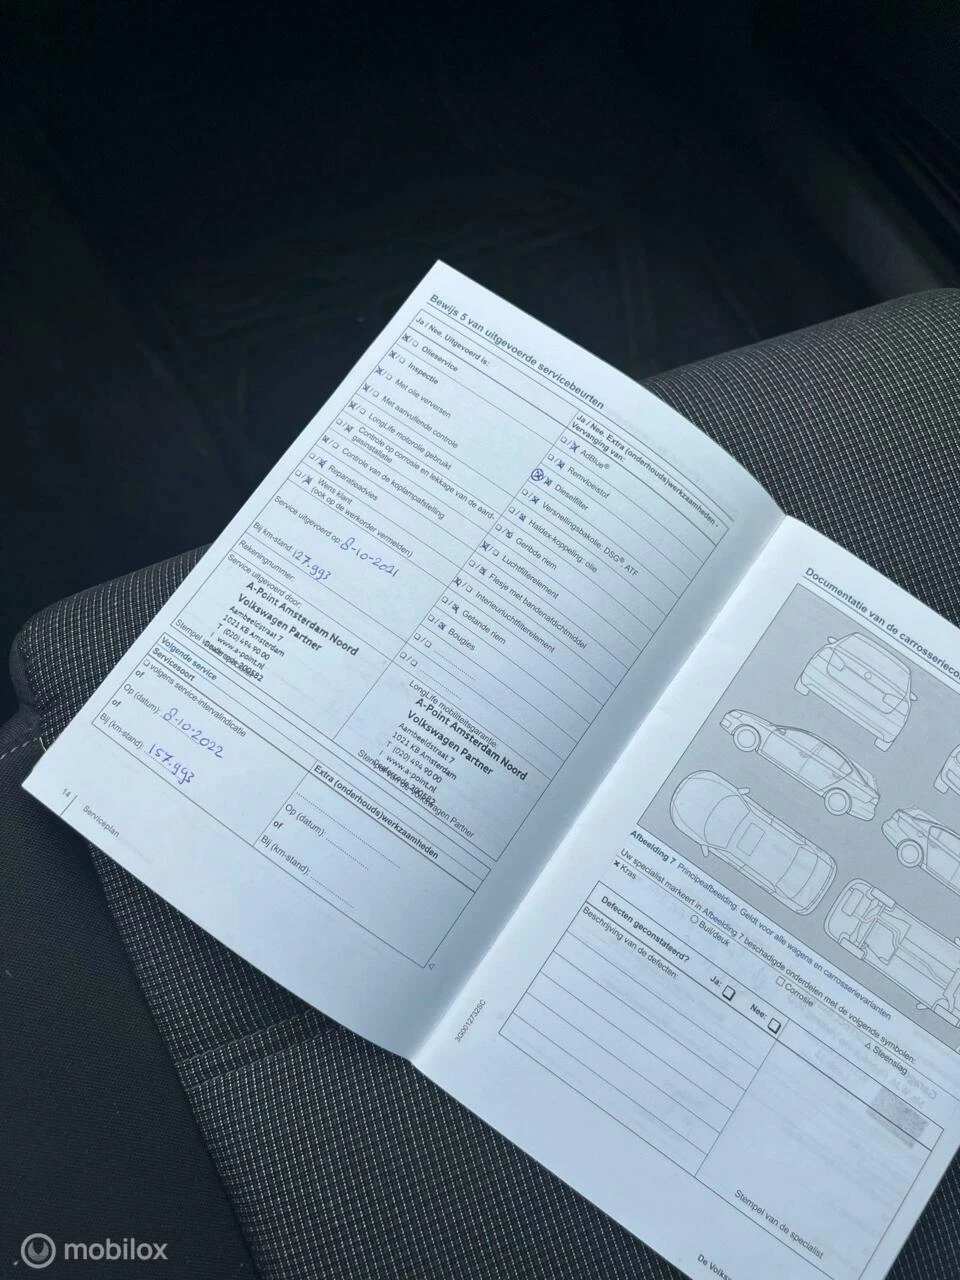 Bewijs 5 van uitgevoerde servicebeurten
Ja / Nee. Uitgevoerd is:
Olieservice
Inspectie
Met olie verversen
Met aanvullende controle
LongLife motorolie gebruikt
Controle op corrosie en lekkage van de aard-
gasinstallatie
Controle van de koplampafstelling
Reparatieadvies
Wens klant
(ook op de werkorder vermelden)
Service uitgevoerd op: 8-10-2021
Bij km-stand: 127.993
Rekeningnummer:
Service uitgevoerd door:
A-Point Amsterdam Noord
Volkswagen Partner
Aambeeldstraat 7
1021 KB Amsterdam
T (020) 494 90 00
I www.a-point.nl
Dealercode 200582
Ja / Nee. Extra (onderhouds)werkzaamheden -
Vervanging van:
AdBlue®
Remvloeistof
Dieselfilter
Versnellingsbakolie: DSG®, ATF
Haldex-koppeling: olie
Geribde riem
Luchtfilterelement
Flesje met bandenafdichtmiddel
Interieurluchtfilterelement
Getande riem
Bougies
LongLife mobiliteitsgarantie:
A-Point Amsterdam Noord
Volkswagen Partner
Aambeeldstraat 7
1021 KB Amsterdam
T (020) 494 90 00
I www.a-point.nl
Dealercode 200582
Stempel van de Volkswagen Partner
Volgende service
Servicesoort
volgens service-intervalindicatie
of
Op (datum): 8-10-2022
of
Bij (km-stand): 157.993
Extra (onderhouds)werkzaamheden
Op (datum):
of
Bij (km-stand):
14
Serviceplan
Documentatie van de carrosserieco
Afbeelding 7 Principeafbeelding: Geldt voor alle wagens en carrosserievarianten
Uw specialist markeert in Afbeelding 7 beschadigde onderdelen met de volgende symbolen:
× Kras
○ Buil/deuk
□ Corrosie
△ Steenslag
Defecten geconstateerd?
Ja:
Nee:
Beschrijving van de defecten:
Stempel van de specialist
3G0012732SC
De Volks
mobilox